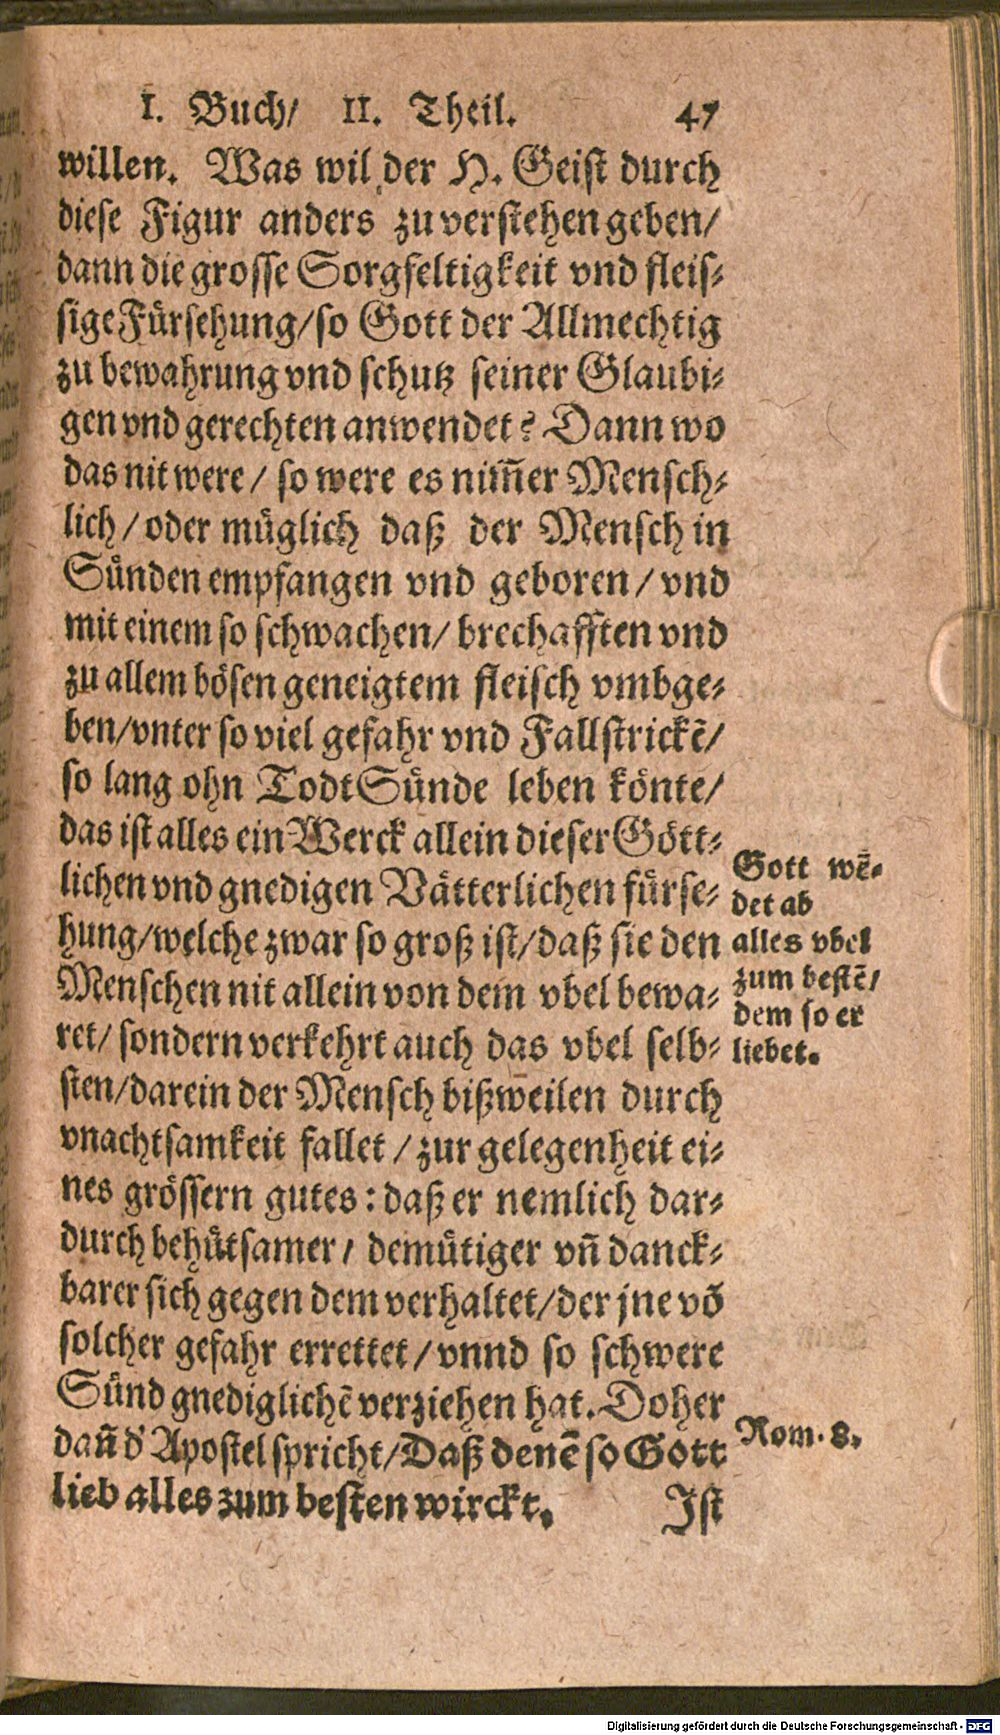 I. Buch/ II. Theil. 47
willen. Was wil der H. Geist durch
diese Figur anders zu verstehen geben/
dann die grosse Sorgfeltigkeit vnd fleis-
sige Fürsehung/so Gott der Allmechtig
zu bewahrung vnd schutz seiner Glaubi-
gen vnd gerechten anwendet? Dann wo
das nit were/ so were es nim̃er Mensch-
lich/oder müglich daß der Mensch in
Sünden empfangen vnd geboren/vnd
mit einem so schwachen/ brechafften vnd
zu allem bösen geneigtem fleisch vmbge-
ben/vnter so viel gefahr vnd Fallstrickẽ/
so lang ohn TodtSünde leben könte/
das ist alles ein Werck allein dieser Gött-
lichen vnd gnedigen Vätterlichen fürse-
hung/welche zwar so groß ist/daß sie den
Menschen nit allein von dem vbel bewa-
ret/ sondern verkehrt auch das vbel selb-
sten/darein der Mensch bißweilen durch
vnachtsamkeit fallet /zur gelegenheit ei-
nes grössern gutes: daß er nemlich dar-
durch behütsamer/ demütiger vñ danck-
barer sich gegen dem verhaltet/der jne võ
solcher gefahr errettet/vnnd so schwere
Sünd gnediglichẽ verziehen hat. Doher
dañ d' Apostel spricht/Daß denẽ so Gott
lieb alles zum besten wirckt.
Ist
Gott wẽ-
det ab
alles vbel
zum bestẽ/
dem so er
liebet.
Rom. 8.
Digitalisierung gefördert durch die Deutsche Forschungsgemeinschaft - DFG